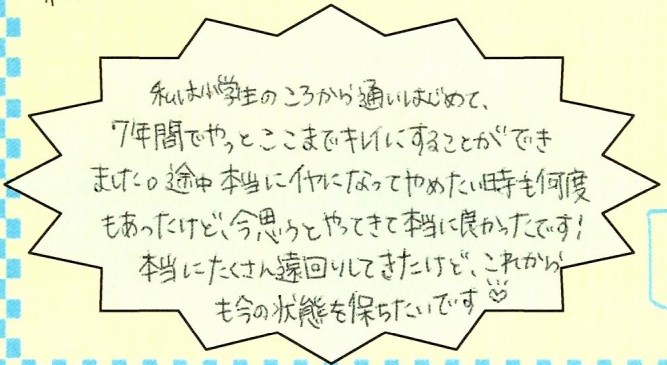 私は小学生のころから通いはじめて、
7年間でやっとここまでキレイにすることができ
ました。途中本当にイヤになってやめたい時も何度
もあったけど、今思うとやってきて本当に良かったです!
本当にたくさん遠回りしてきたけど、これから
も今の状態を保ちたいです